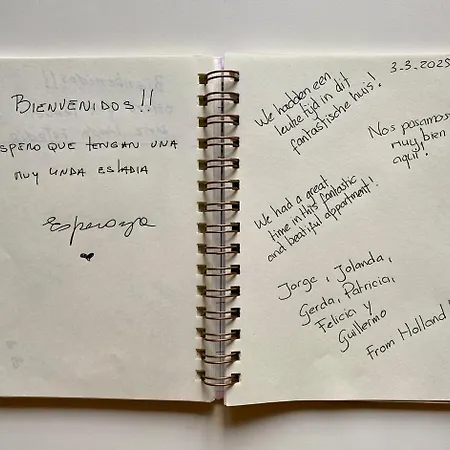 BIENVENIDOS!!
ESPERO QUE TENGAN UNA
MUY LINDA ESTADIA
Esperanza
3-3-2025
We hadden een
leuke tijd in dit
fantastische huis!
Nos pasamos
muy bien
aqui!
We had a great
time in this fantastic
and beatiful appartment!
Jorge, Jolanda,
Gerda, Patricia,
Felicia y
Guillermo
From Holland